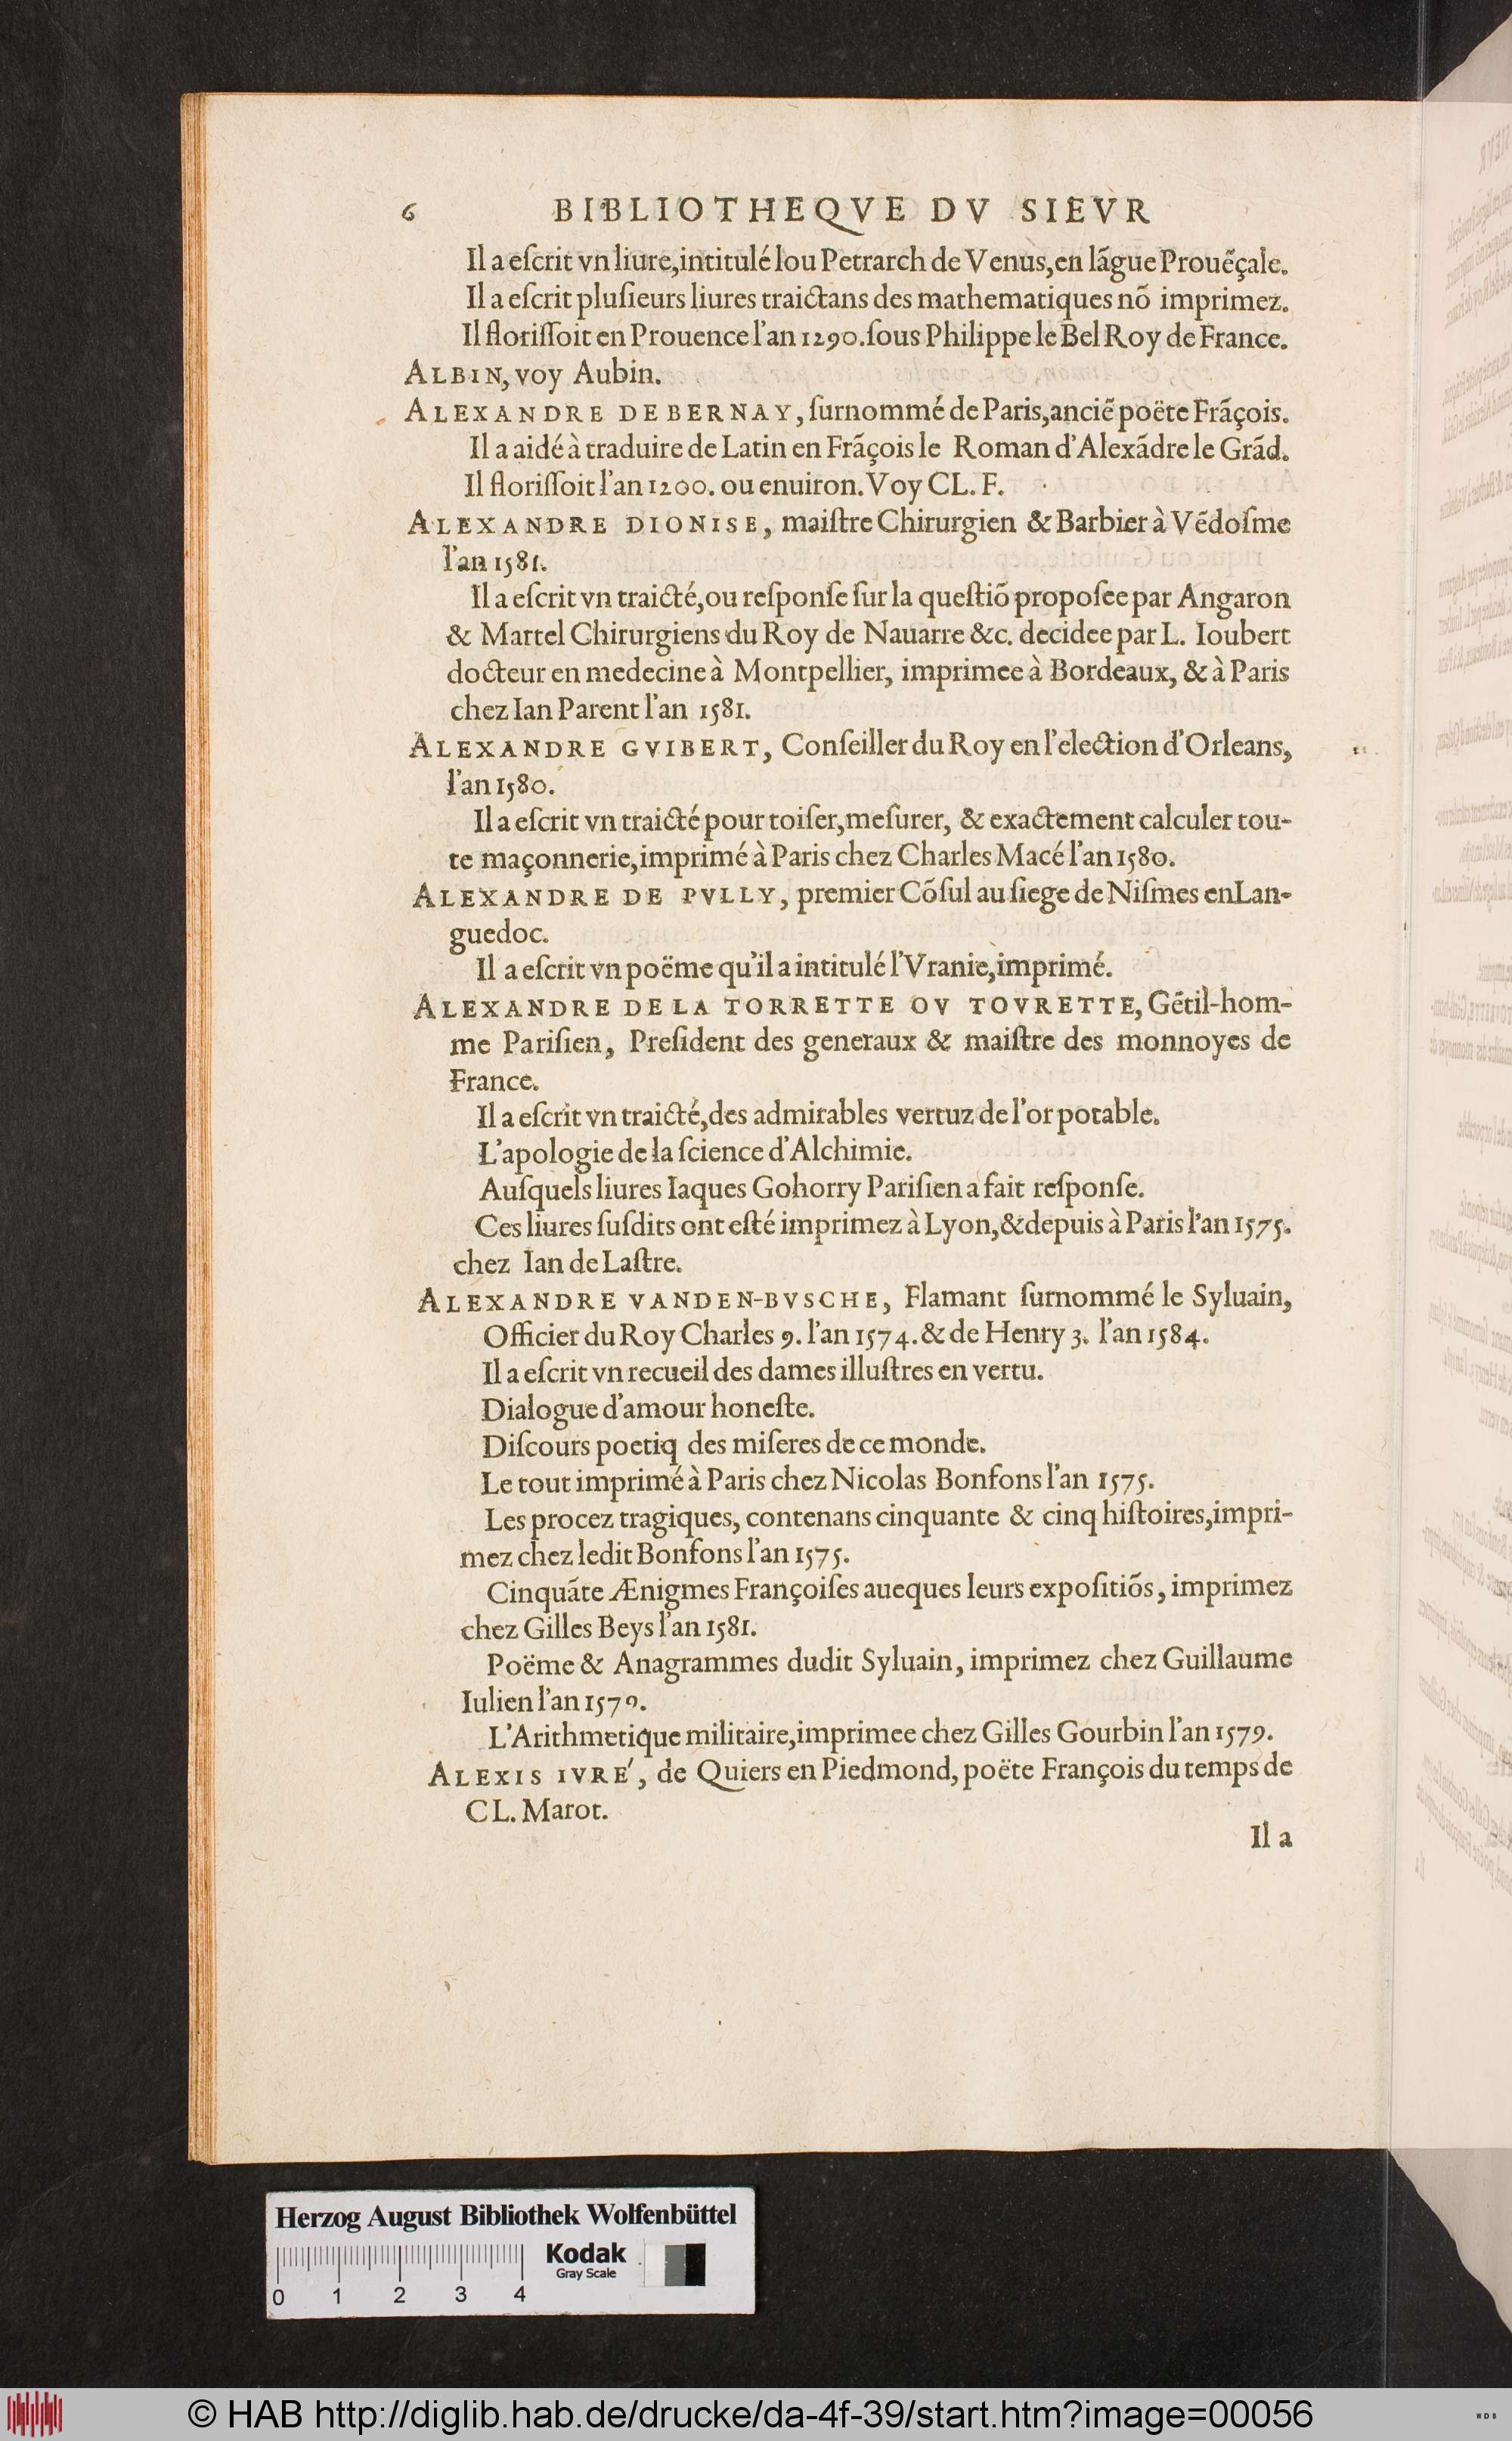 6 BIBLIOTHEQVE DV SIEVR
Il a eſcrit vn liure, intitulé lou Petrarch de Venus, en lãgue Prouẽçale.
Il a eſcrit pluſieurs liures traictans des mathematiques nõ imprimez.
Il floriſſoit en Prouence l'an 1290. ſous Philippe le Bel Roy de France.
ALBIN, voy Aubin.
ALEXANDRE DE BERNAY, ſurnommé de Paris, anciẽ poëte Frãçois.
Il a aidé à traduire de Latin en Frãçois le Roman d'Alexãdre le Grãd.
Il floriſſoit l'an 1200. ou enuiron. Voy CL. F.
ALEXANDRE DIONISE, maiſtre Chirurgien & Barbier à Vẽdoſme
l'an 1581.
Il a eſcrit vn traicté, ou reſponſe ſur la queſtiõ propoſee par Angaron
& Martel Chirurgiens du Roy de Nauarre &c. decidee par L. Ioubert
docteur en medecine à Montpellier, imprimee à Bordeaux, & à Paris
chez Ian Parent l'an 1581.
ALEXANDRE GVIBERT, Conſeiller du Roy en l'election d'Orleans,
l'an 1580.
Il a eſcrit vn traicté pour toiſer, meſurer, & exactement calculer tou-
te maçonnerie, imprimé à Paris chez Charles Macé l'an 1580.
ALEXANDRE DE PVLLY, premier Cõſul au ſiege de Niſmes en Lan-
guedoc.
Il a eſcrit vn poëme qu'il a intitulé l'Vranie, imprimé.
ALEXANDRE DE LA TORRETTE OV TOVRETTE, Gẽtil-hom-
me Pariſien, Preſident des generaux & maiſtre des monnoyes de
France.
Il a eſcrit vn traicté, des admirables vertuz de l'or potable.
L'apologie de la ſcience d'Alchimie.
Auſquels liures Iaques Gohorry Pariſien a fait reſponſe.
Ces liures ſuſdits ont eſté imprimez à Lyon, & depuis à Paris l'an 1575.
chez Ian de Laſtre.
ALEXANDRE VANDEN-BVSCHE, Flamant ſurnommé le Syluain,
Officier du Roy Charles 9. l'an 1574. & de Henry 3. l'an 1584.
Il a eſcrit vn recueil des dames illuſtres en vertu.
Dialogue d'amour honeſte.
Diſcours poetiq des miſeres de ce monde.
Le tout imprimé à Paris chez Nicolas Bonfons l'an 1575.
Les procez tragiques, contenans cinquante & cinq hiſtoires, impri-
mez chez ledit Bonfons l'an 1575.
Cinquãte Ænigmes Françoiſes aueques leurs expoſitiõs, imprimez
chez Gilles Beys l'an 1581.
Poëme & Anagrammes dudit Syluain, imprimez chez Guillaume
Iulien l'an 1579.
L'Arithmetique militaire, imprimee chez Gilles Gourbin l'an 1579.
ALEXIS IVRE', de Quiers en Piedmond, poëte François du temps de
CL. Marot.
Il a
Herzog August Bibliothek Wolfenbüttel
Kodak
Gray Scale
0 1 2 3 4
© HAB http://diglib.hab.de/drucke/da-4f-39/start.htm?image=00056
WDB